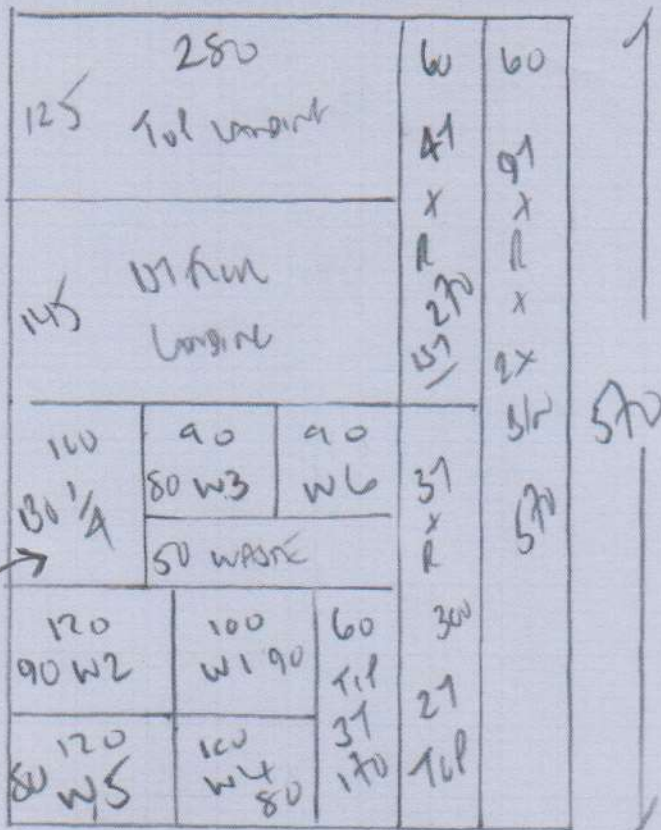 280
125 Top Landing
145 1st Floor
Landing
60
4T
X
R
270
1ST
60
9T
X
R
X
2X
S/R
570
570
100
130 1/4
90
80 W3
90
W6
50 WASTE
3T
X
R
300
2T
TOP
120
90 W2
100
W1 90
60
TOP
3T
170
120
80 W5
100
W4
80